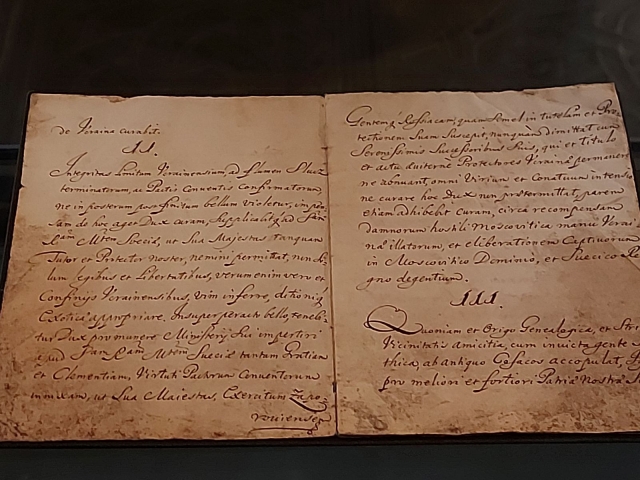 de Vcraina curabit.
II.
Integritas limitum Vcrainensium, ad flumen Slucz
terminatorum, ac Pactis Conventis confirmatorum
ne in posterum post finitum bellum violetur, in
sam de hoc aget Dux curam, Supplicabitq; ad
Mtem Sueciæ, ut Sua Majestas tanquam
Tutor et Protector noster, nemini permittat, non
lum legibus et Libertatibus, verum enim vero et
Confinijs Vcrainensibus, vim inferre, ditioniq;
Exoticæ appropriare. Insuper peracto bello, teneb:
tur Dux pro munere Ministerij sui impertiri
apud Mtem Sueciæ tantam Gratiam
et Clementiam, Virtuti Pactorum Conventorum
innixam, ut Sua Maiestas, Exercitum Zapo:
roviensem
Gentemq; Cosacam, quam semel in tutelam et Pro
tectionem Suam Suscepit, nunquam dimittat cum
Serenissimis Successoribus Suis, qui et titulo
et actu diuternæ Protectores Vcrainæ permanere
ne abnuant, omni Virium et Conatuum intensio
ne curare hoc Dux non prætermittat, parem
etiam adhibebit Curam, circa recompensam
damnorum hostili Moscovitica manu Vcrai
næ illatorum, et eliberationem Captivorum
in Moscovitico Dominio, et Suecico
gno degentium.
III.
Quoniam et Origo Genealogica, et
Vicinitatis amicitia, cum invicta gente
thica, ab antiquo Cosacos accopulat,
pro meliori et fortiori Patriæ Nostræ